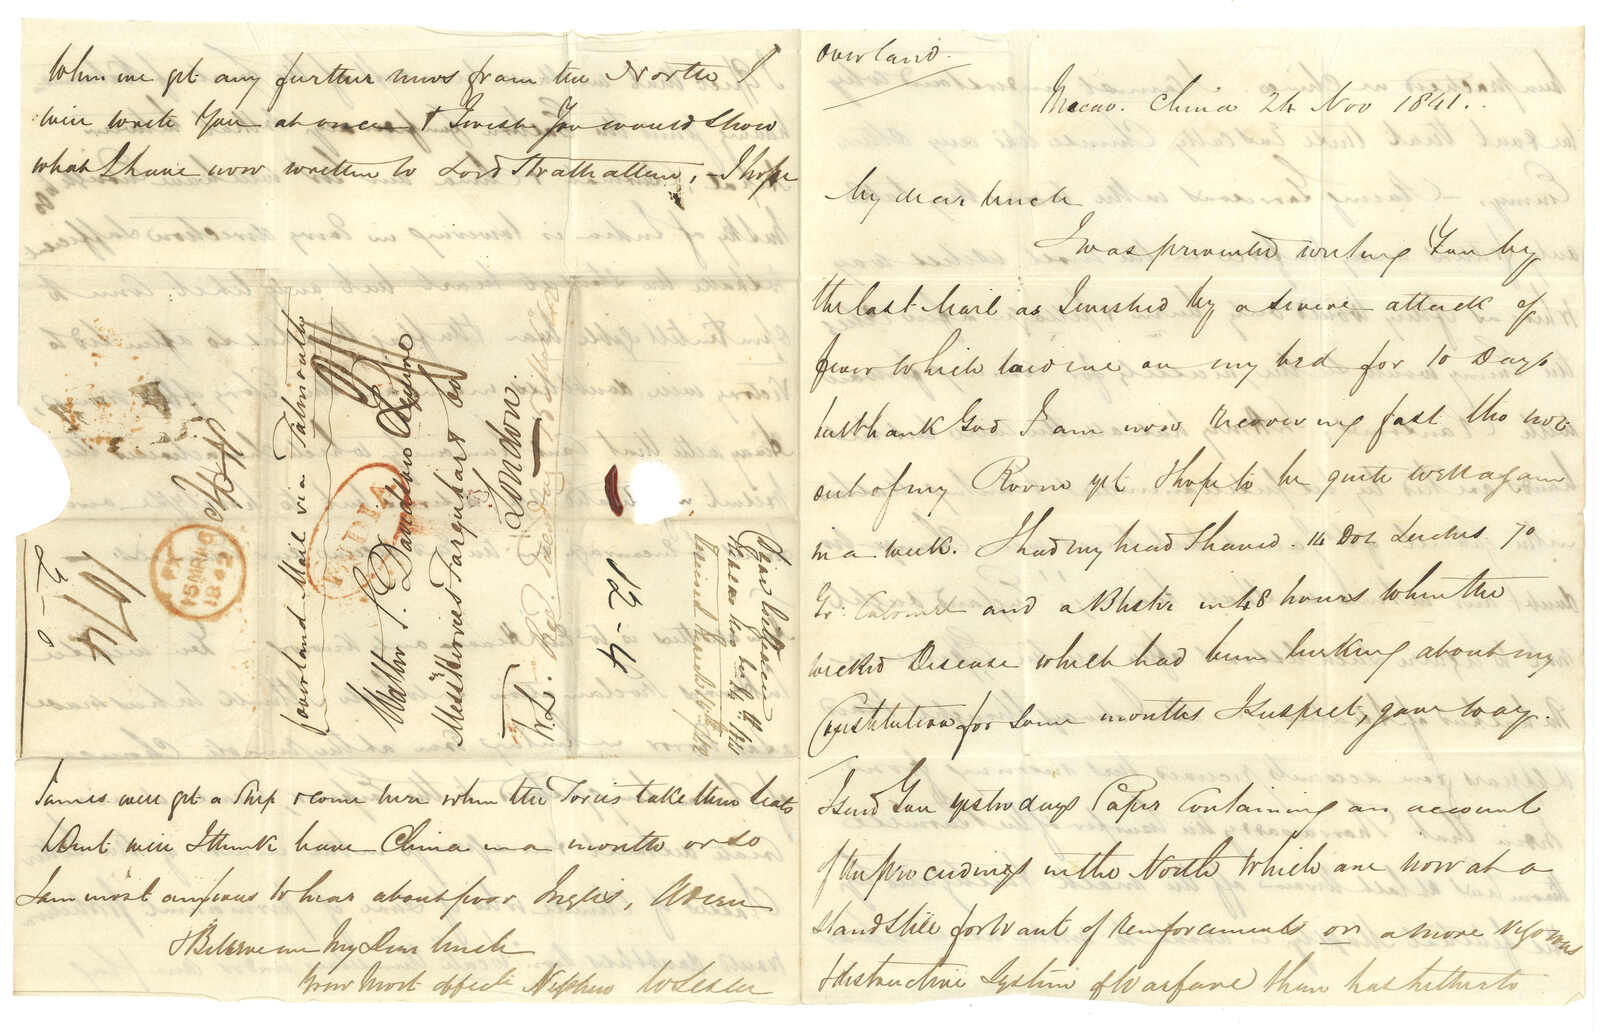 overland.
Macao. China 24 Nov 1841.
My dear Uncle
I was prevented writing You by
the last Mail as I wished by a severe attack of
fever which laid me on my bed for 10 Days
but thank God I am now recovering fast tho not
out of my Room yet I hope to be quite well again
in a week. I had my head Shaved. 14 Doz Leeches 70
Gr: Calomel and a Blister in 48 hours when the
wicked Disease which had been lurking about my
Constitution for some months I suspect, gave way.
I send You yesterdays Paper Containing an account
of the proceedings in the North which are now at a
stand still for want of reinforcements or a more vigorous
& destructive System of Warfare than has hitherto
When we get any further news from the North I
will write You at once & I wish You would show
what I have now written to Lord Strathallan, I hope
James will get a Ship & come here when the Tories take their Seats
Dent will I think have China in a month or so
I am most anxious to hear about poor Inglis, Adieu
& Believe me My Dear Uncle
Your Most affect: Nephew W Leslie
overland Mail via Falmouth
Willm S. Davidson Esquire
Messieurs Farquhar & Co
London.
INDIA
PY
15 MR 15
1842
1074
12-4
Macao